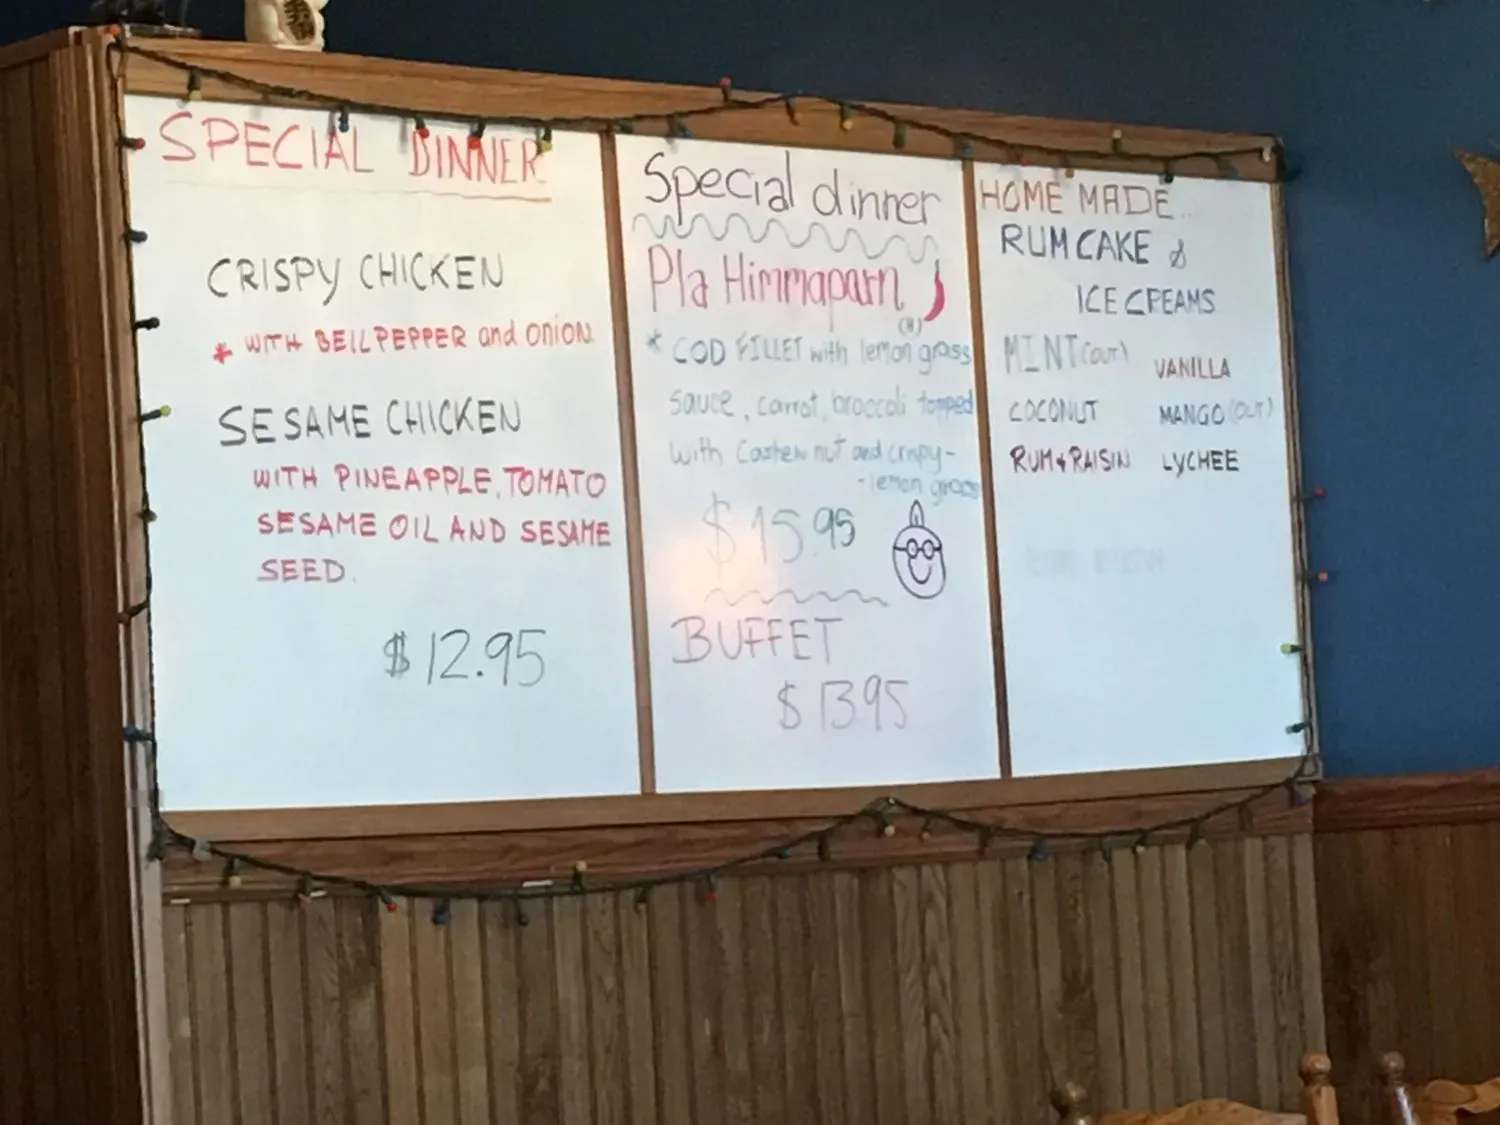 SPECIAL DINNER
CRISPY CHICKEN
* WITH BELLPEPPER and onion
SESAME CHICKEN
WITH PINEAPPLE, TOMATO
SESAME OIL AND SESAME
SEED.
$12.95
Special dinner
Pla Himmaparn
(H)
* COD FILLET with lemon grass
sauce, carrot, broccoli topped
with Cashew nut and crispy-
-lemon grass
$15.95
BUFFET
$1395
HOME MADE...
RUM CAKE &
ICE CREAMS
MINT (OUT) VANILLA
COCONUT MANGO (OUT)
RUM & RAISIN LYCHEE